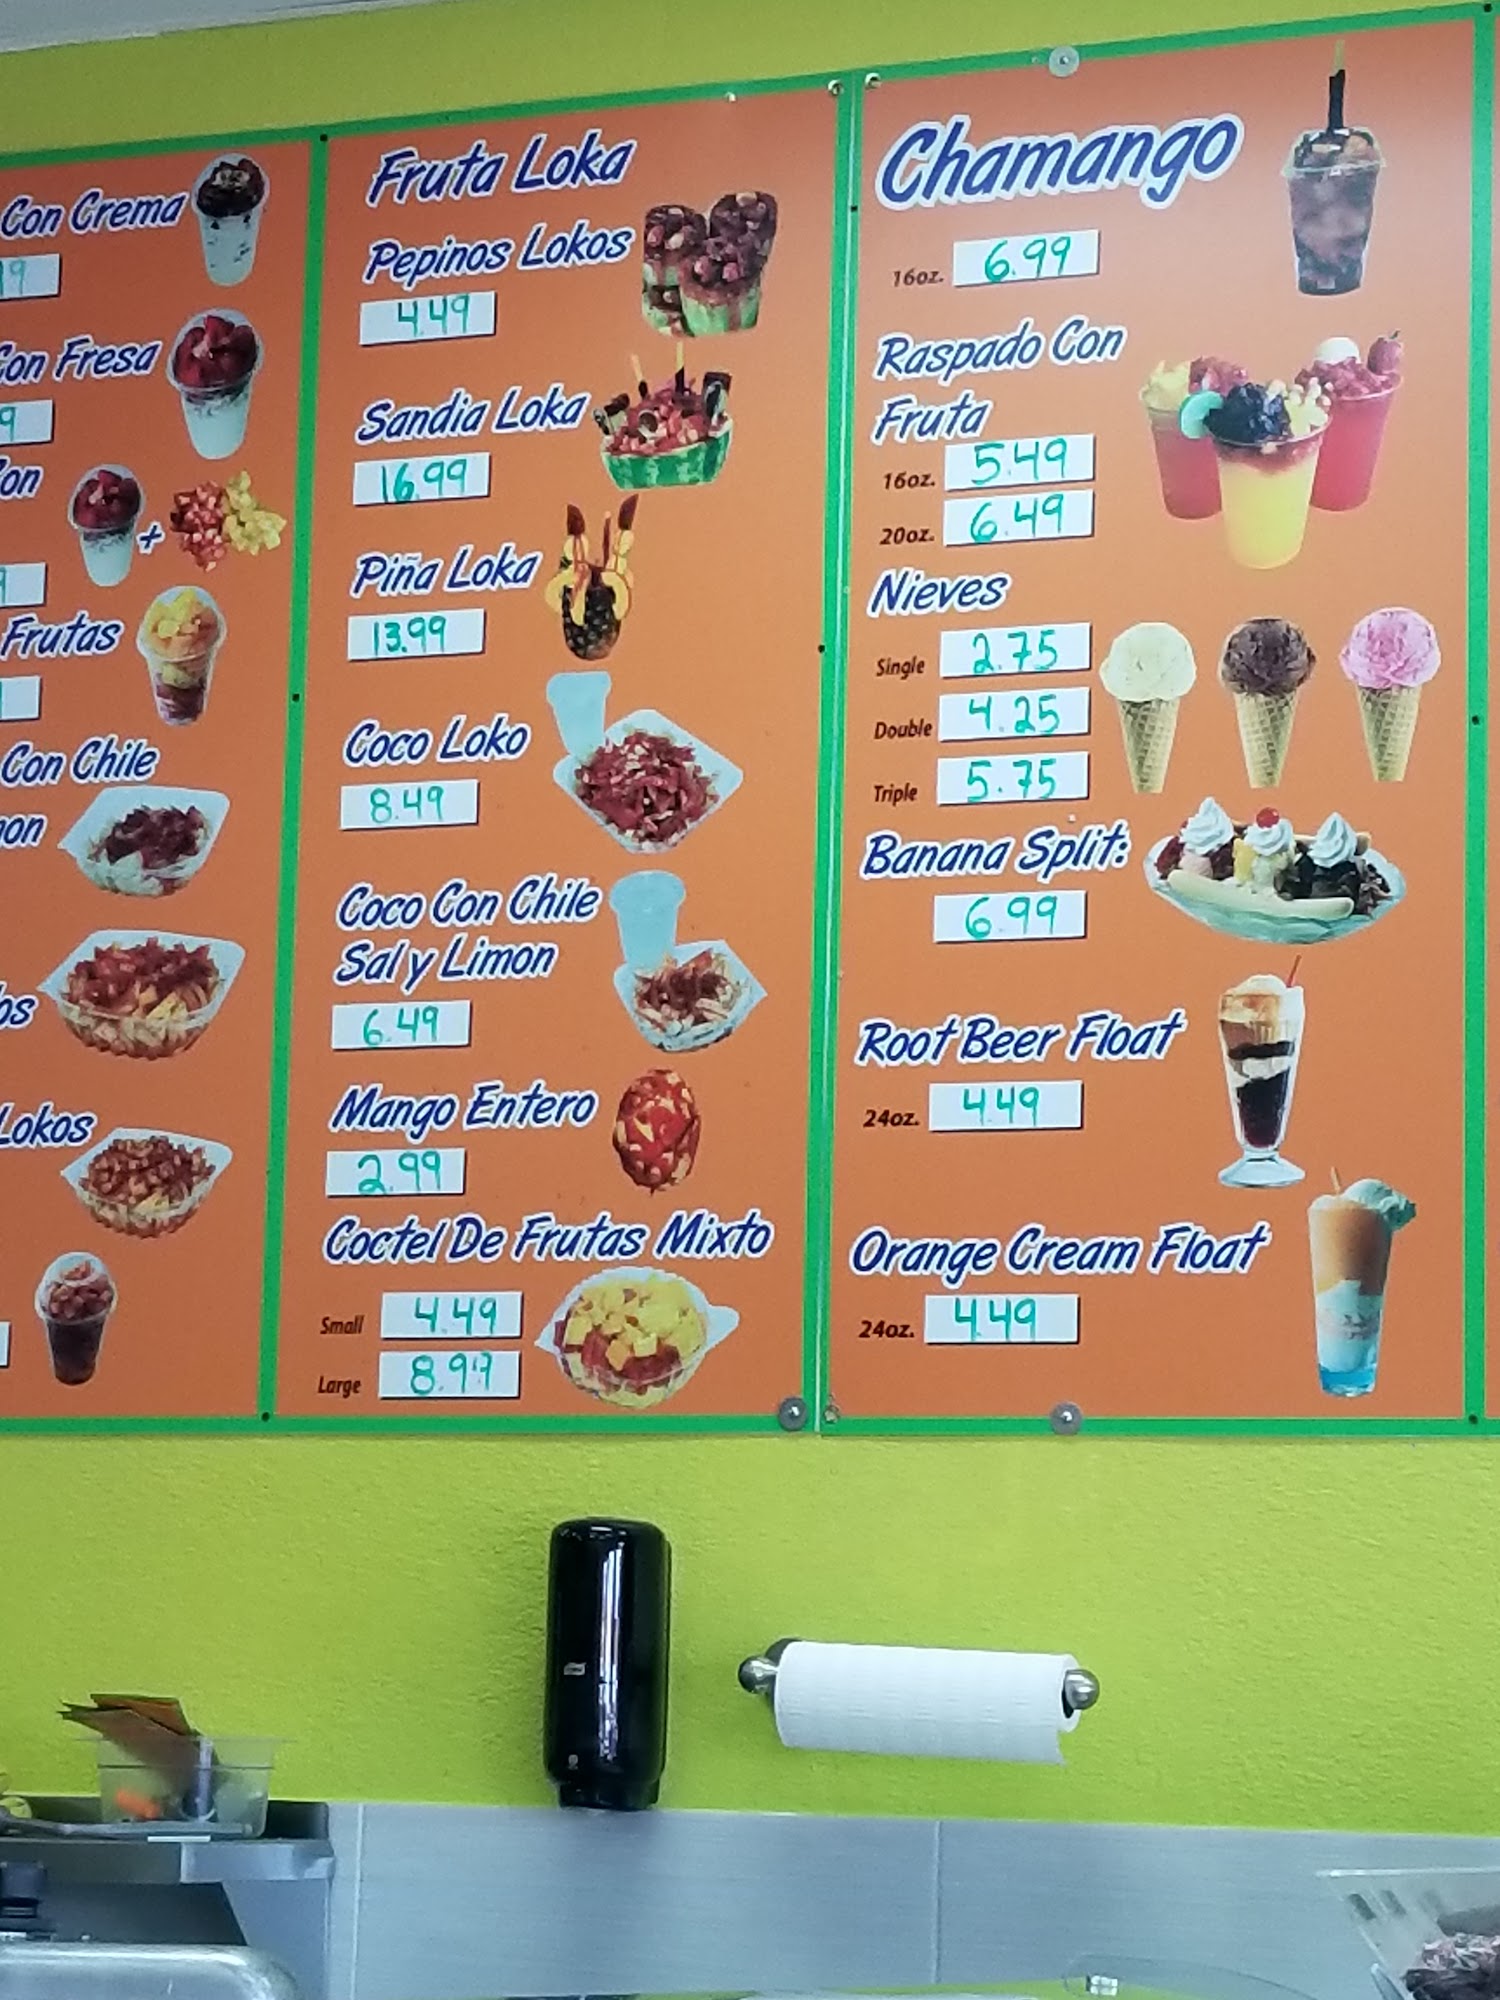 Con Crema
Con Fresa
+
Frutas
Con Chile
Lokos
Fruta Loka
Pepinos Lokos
4.49
Sandia Loka
16.99
Piña Loka
13.99
Coco Loko
8.49
Coco Con Chile
Sal y Limon
6.49
Mango Entero
2.99
Coctel De Frutas Mixto
Small 4.49
Large
Chamango
16oz. 6.99
Raspado Con
Fruta
16oz. 5.49
20oz. 6.49
Nieves
Single 2.75
Double 4.25
Triple 5.75
Banana Split:
6.99
Root Beer Float
24oz. 4.49
Orange Cream Float
24oz. 4.49